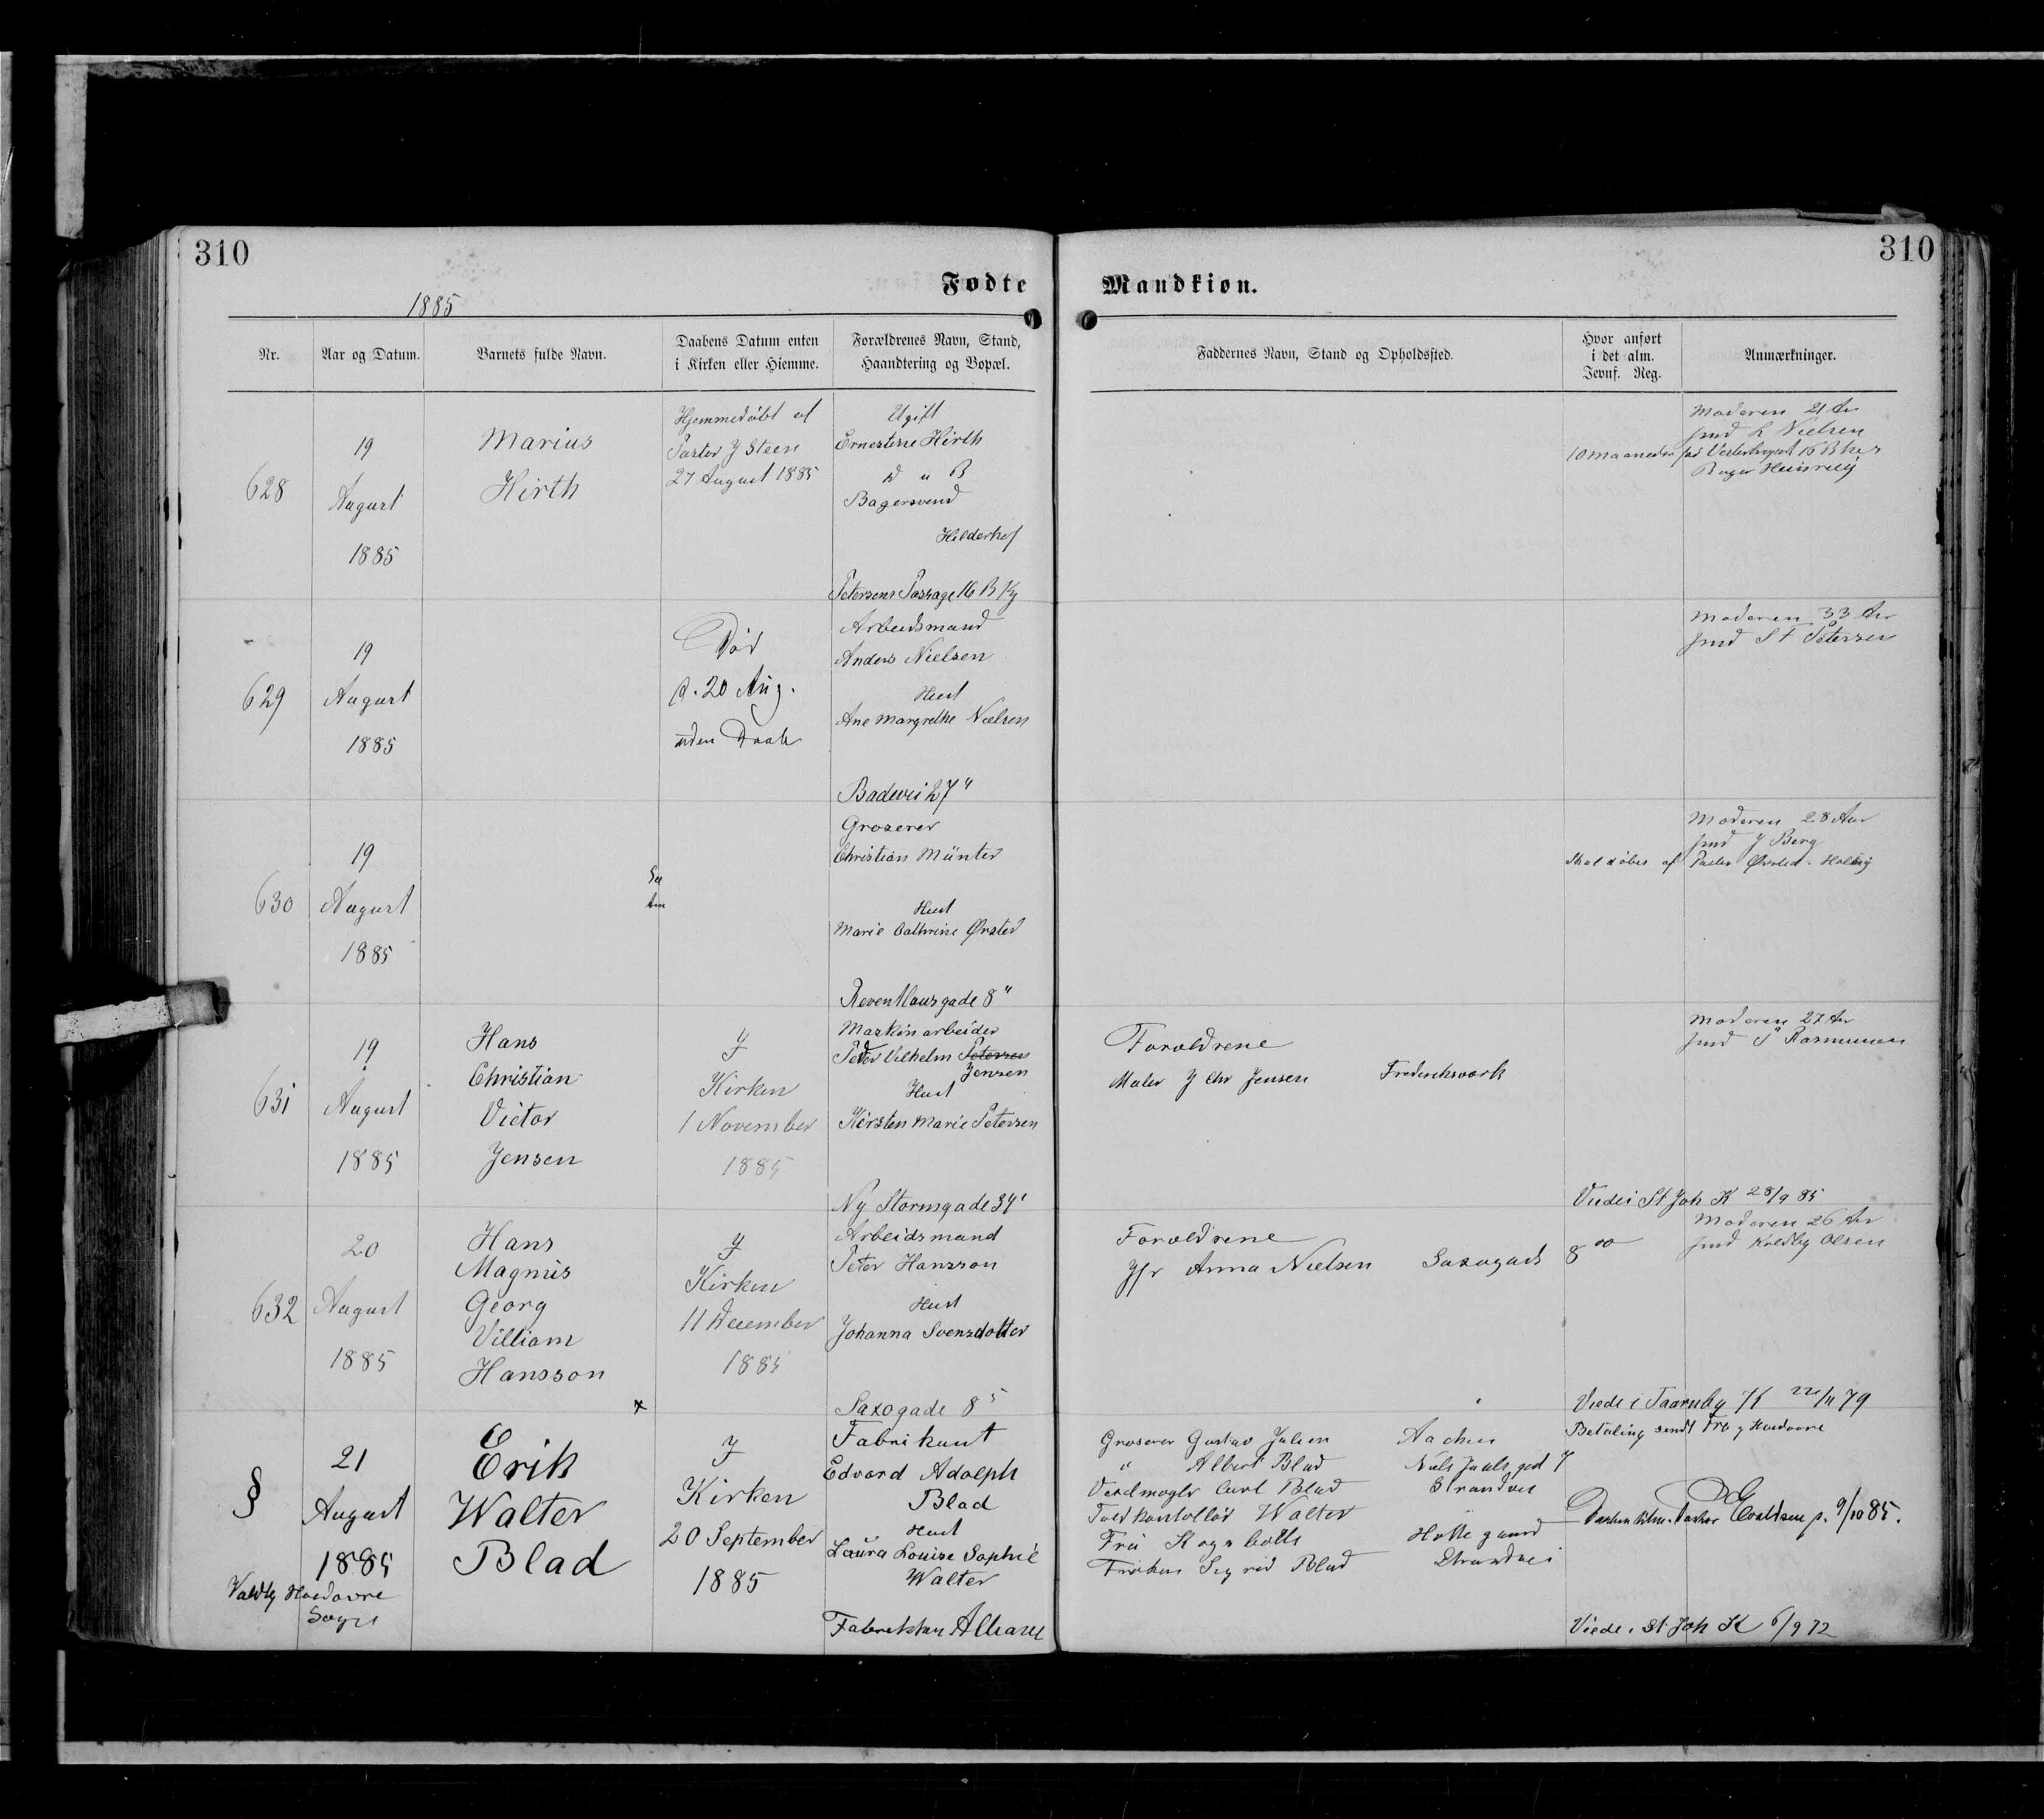 310
310
Fødte
Mandkiøn.
1885
Nr.
Aar og Datum.
Barnets fulde Navn.
Daabens Datum enten
i Kirken eller Hiemme.
Forældrenes Navn, Stand,
Haandtering og Bopæl.
Faddernes Navn, Stand og Opholdssted.
Hvor anført
i det alm.
Jevnf. Reg.
Anmærkninger.
628
19
August
1885
Marius
Hirth
Hjemmedøbt af
Pastor J Steen
27 August 1885
Ugift
Ernestine Hirth
Bagersvend
Petersens Passage 16 B
Moderen 21 Ar
Jmd L Nielsen
10 maaneder
629
19
August
1885
Død
d. 20 Aug.
uden Daab
Arbeidsmand
Anders Nielsen
Hust
Ane Margrethe Nielsen
Badevei 27
Moderen 33 Ar
Jmd S F Petersen
630
19
August
1885
Groserer
Christian Münter
Hust
Marie Cathrine Ørsted
Reventlousgade 8"
Moderen 28 Aar
Jmd J Berg
Skal døbes af Pastor Ørsted
631
19
August
1885
Hans
Christian
Victor
Jensen
J
Kirken
1 November
1885
Maskinarbeider
Peder Vilhelm Petersen
Jensen
Hust
Kirsten Marie Petersen
Ny Stormgade 34
Forældrene
Maler J Chr Jensen Frederiksværk
Moderen 27 Ar
Jmd P Rasmussen
Viede i St Joh K 28/9 85
632
20
August
1885
Hans
Magnus
Georg
Villiam
Hansson
J
Kirken
11 December
1885
Arbeidsmand
Peter Hansson
Hust
Johanna Svensdotter
Saxogade 8 5
Forældrene
Jfr Anna Nielsen Saxogade 8
Moderen 26 Ar
Jmd Koldby Olsen
Viede i Taarnby K 22/11 79
§
21
August
1885
Valdby Hvidovre
Sogn
Erik
Walter
Blad
J
Kirken
20 September
1885
Fabrikant
Edvard Adolph
Blad
Hust
Laura Louise Sophie
Walter
Groserer Gustav Julien Aachen
" Albert Blad Niels Juels gad 7
Vexelmægler Carl Blad Strandvei
Toldkontollør Walter
Fru
Frøken Sigrid Blad Strandvei
Betaling sendt
9/10 85.
Viede i St Joh K 6/9 72